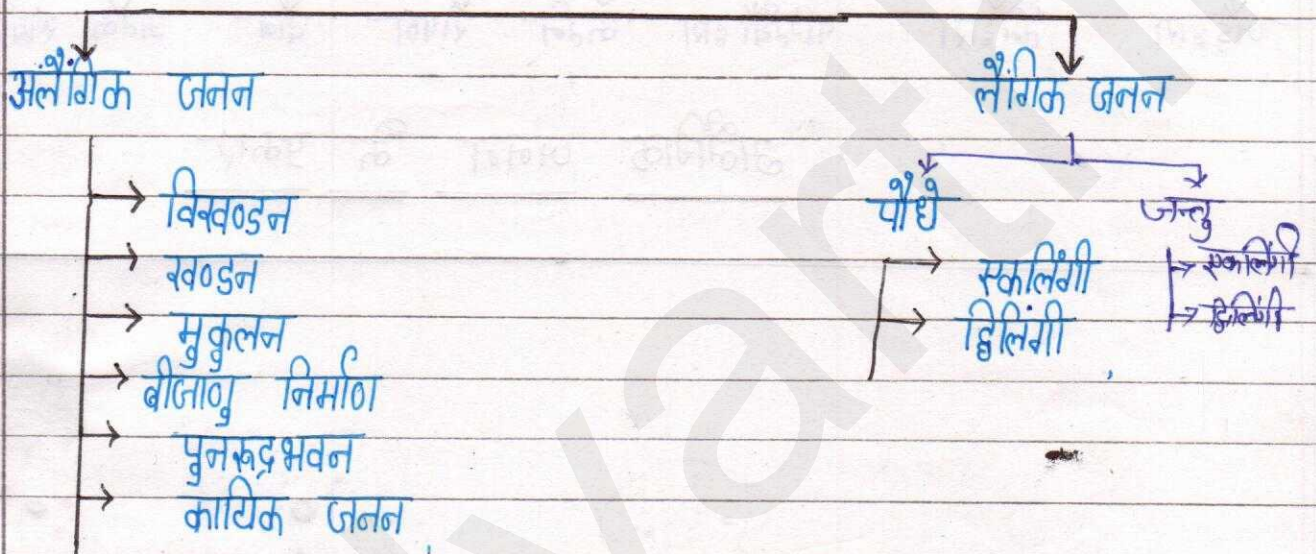 अलैंगिक जनन
लैंगिक जनन
विखण्डन
खण्डन
मुकुलन
बीजाणु निर्माण
पुनरुद्रभवन
कायिक जनन
पौधे
एकलिंगी
द्विलिंगी
जन्तु
एकलिंगी
द्विलिंगी